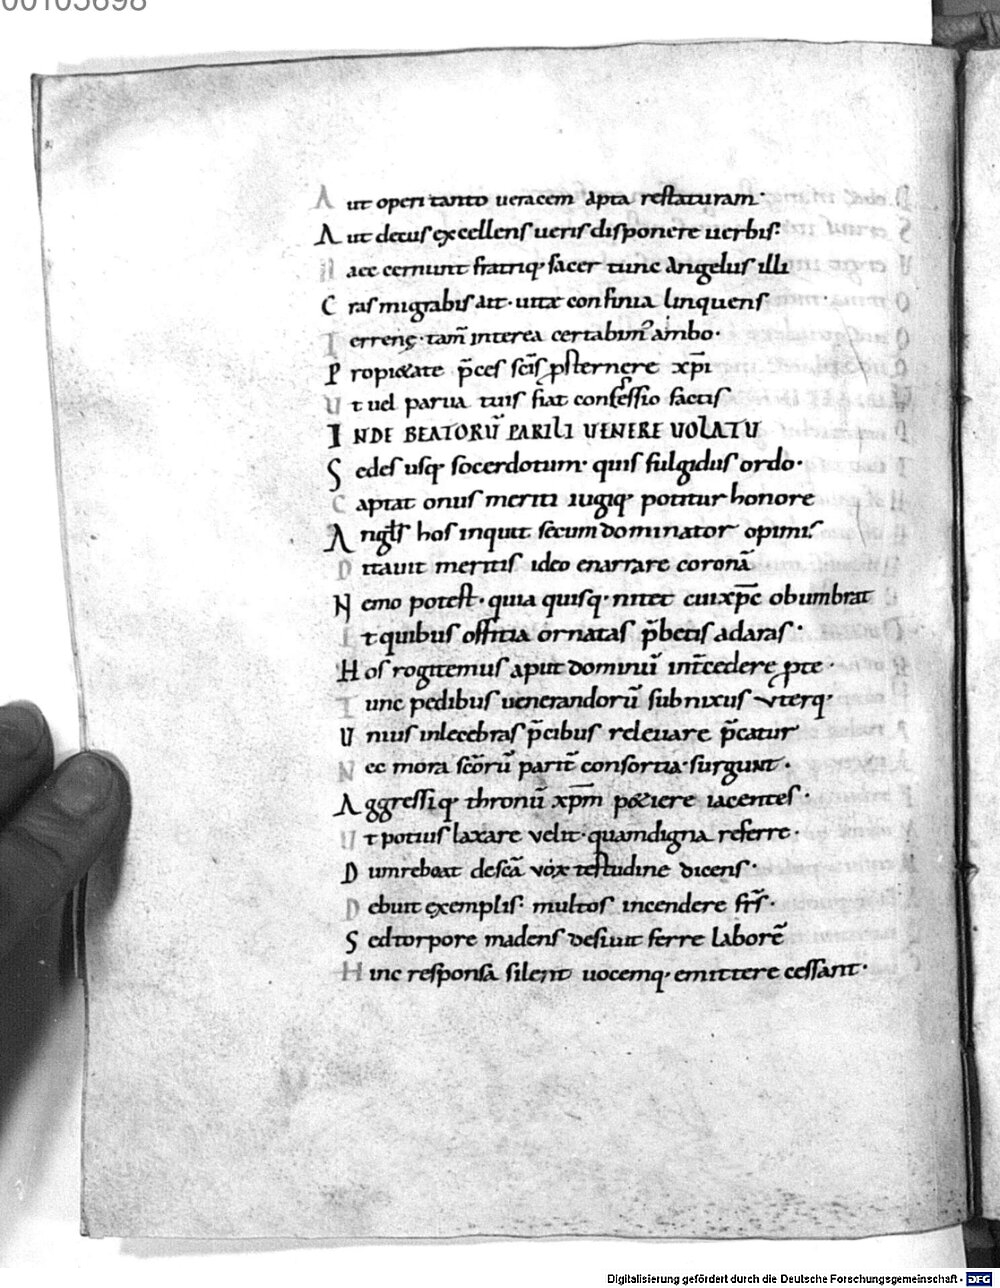 00105698
Aut operi tanto ueracem apta restaturam·
Aut decus excellens ueris disponere uerbis·
Haec cernunt fratriq· sacer tunc angelus illi
Cras migrabis ait· uitæ confinia linquens
Terrenę· tam̄ interea certabim᾽ ambo·
Propitiate p̄ces sc̄is psternere xp̄i
Ut uel parua tuis fiat confessio factis
INDE BEATORŪ PARILI UENERE UOLATU
Sedes usq· socerdotum· quis fulgidus ordo·
Captat onus meriti iugiq· potitur honore
Angl̄s hos inquit secum dominator opimis·
Ditauit meritis ideo enarrare coronā
Nemo potest· quia quisq· nitet cui xp̄c obumbrat
Et quibus offitia ornatas p̄betis ad aras·
Hos rogitemus aput dominū int̄cedere pte·
Tunc pedibus uenerandorū subnixus uterq·
Unius inlecebras p̄cibus releuare p̄catur
Nec mora sc̄orū parit̄ consortia surgunt·
Aggressiq· thronū xp̄m petiere iacentes·
Ut potius laxare velit· quam digna referre·
Dum reboat descā vox testudine dicens·
Debuit exemplis· multos incendere fr̄s·
Sed torpore madens desiuit ferre laborē
Hinc responsa silent uocemq· emittere cessant·
Digitalisierung gefördert durch die Deutsche Forschungsgemeinschaft - DFG